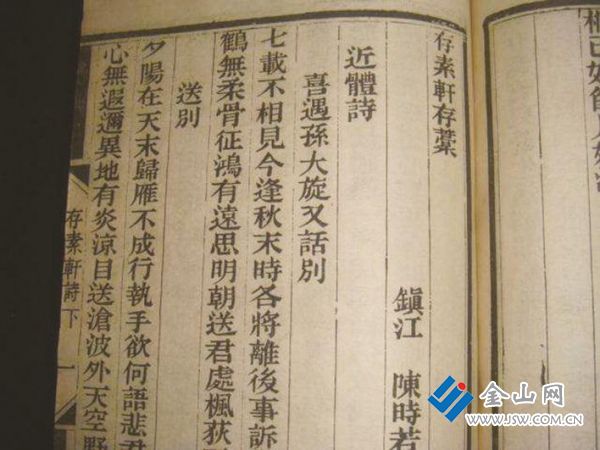 存素軒存藁
鎭江 陳時若
近體詩
喜遇孫大旋又話別
七載不相見今逢秋末時各將離後事訴
鶴無柔骨征鴻有遠思明朝送君處楓荻
送別
夕陽在天末歸雁不成行執手欲何語悲君
心無遐邇異地有炎涼目送滄波外天空野
存素軒詩下
一
金山网
WWW.JSW.COM.CN